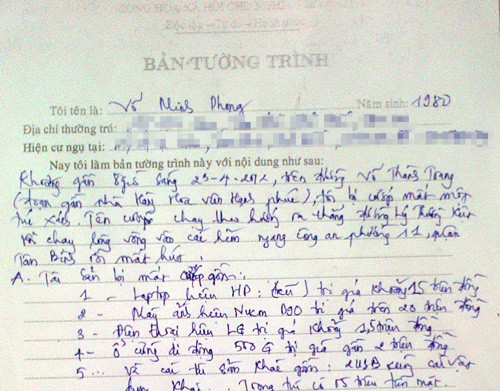 CỘNG HÒA XÃ HỘI CHỦ NGHĨA
Độc lập - Tự do - Hạnh phúc
BẢN TƯỜNG TRÌNH
Tôi tên là: Võ Minh Phong Năm sinh: 1980
Địa chỉ thường trú:
Hiện cư ngụ tại:
Nay tôi làm bản tường trình này với nội dung như sau:
Khoảng gần 8 giờ sáng 25-4-2012, trên đường Võ Thành Trang
(đoạn gần nhà hàng Hoa viên Hạnh phúc), tôi bị cướp mất một
túi xách. Tên cướp chạy theo hướng ra thẳng đường Lý Thường Kiệt
rồi chạy lòng vòng vào các hẻm ngang Công an phường 11, quận
Tân Bình rồi mất hút.
A. Tài sản bị mất gồm:
1 - Laptop hiệu HP: (cũ) trị giá khoảng 15 triệu đồng
2 - Máy ảnh hiệu Nicon D90 trị giá trên 20 triệu đồng
3 - Điện thoại hiệu LG trị giá khoảng 1,5 triệu đồng
4 - ổ cứng di động 500 G trị giá gần 2 triệu đồng
5... Và các tài sản khác gồm: 2 USB cùng các vật
dụng khác. Trong túi có 15 triệu tiền mặt.